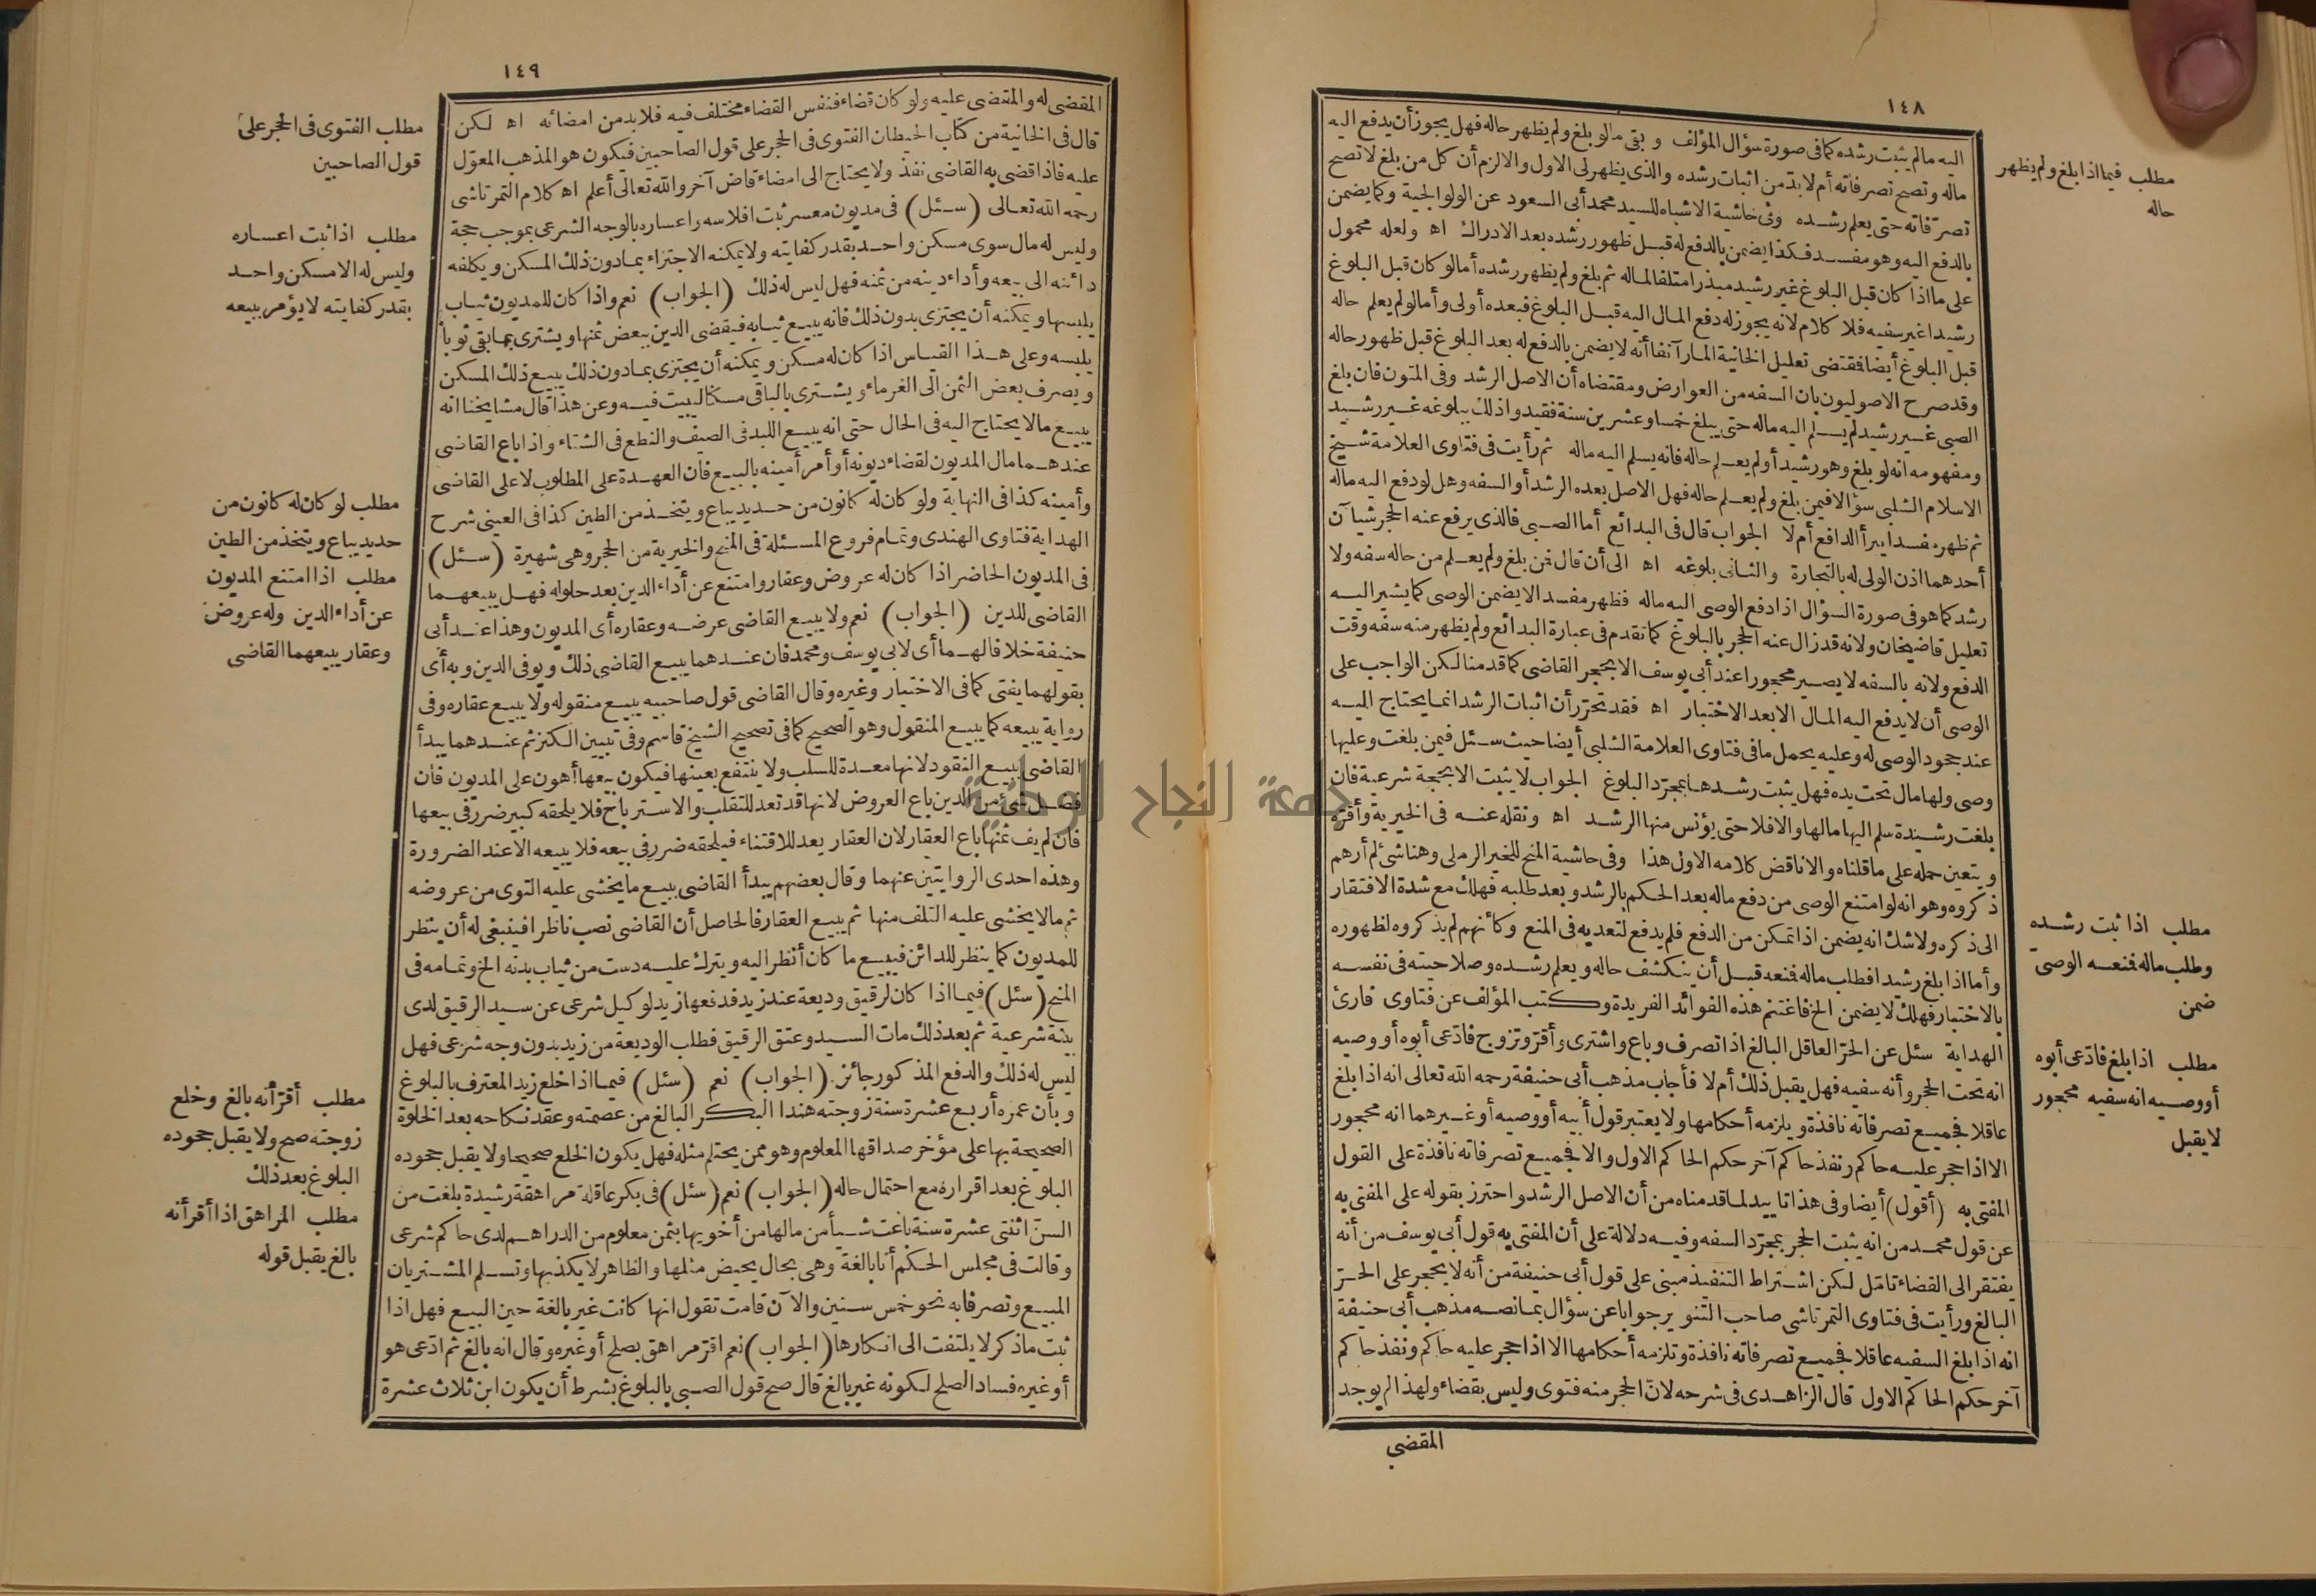 ١٤٨
اليه مالم يثبت رشده كما فى صورة سؤال المؤلف وبقى مالو بلغ ولم يظهر حاله فهل يجوز أن يدفع اليه
ماله وتصح تصرفاته أم لابد من اثبات رشده والذى يظهر لى الاول والالزم أن كل من بلغ لا تصح
تصرفاته حتى يعلم رشده وفى حاشية الاشباه للسيد محمد أبى السعود عن الولوالجية وكما يضمن
بالدفع اليه وهو مفسد فكذا يضمن بالدفع له قبل ظهور رشده بعد الادراك اه ولعله محمول
على ما اذا كان قبل البلوغ غير رشيد مبذرا متلفا لماله ثم بلغ ولم يظهر رشده أما لو كان قبل البلوغ
رشيدا غير سفيه فلا كلام لانه يجوز له دفع المال اليه قبل البلوغ فبعده أولى وأما لو لم يعلم حاله
قبل البلوغ أيضا فقتضى تعليل الخانية المار آنفا أنه لا يضمن بالدفع له بعد البلوغ قبل ظهور حاله
وقد صرح الاصوليون بان السفه من العوارض ومقتضاه أن الاصل الرشد وفى المتون فان بلغ
الصبى غير رشيد لم يسلم اليه ماله حتى يبلغ خمسا وعشرين سنة فقيدوا ذلك ببلوغه غير رشيد
ومفهومه انه لو بلغ وهو رشيد أو لم يعلم حاله فانه يسلم اليه ماله ثم رأيت فى فتاوى العلامة شيخ
الاسلام الشلبى سؤالا فيمن بلغ ولم يعلم حاله فهل الاصل بعده الرشد أو السفه وهل لو دفع اليه ماله
ثم ظهر مفسدا يبرأ الدافع أم لا الجواب قال فى البدائع أما الصبى فالذى يرفع عنه الحجر شيآن
أحدهما اذن الولى له بالتجارة والثانى بلوغه اه الى أن قال فمن بلغ ولم يعلم من حاله سفه ولا
رشد كما هو فى صورة السؤال اذا دفع الوصى اليه ماله فظهر مفسدا لا يضمن الوصى كما يشير اليه
تعليل قاضيخان ولانه قد زال عنه الحجر بالبلوغ كما تقدم فى عبارة البدائع ولم يظهر منه سفه وقت
الدفع ولانه بالسفه لا يصير محجورا عند أبى يوسف الا بحجر القاضى كما قدمنا لكن الواجب على
الوصى أن لا يدفع اليه المال الا بعد الاختبار اه فقد تحرر أن اثبات الرشد انما يحتاج اليه
عند جحود الوصى له وعليه يحمل ما فى فتاوى العلامة الشلبى أيضا حيث سئل فيمن بلغت وعليها
وصى ولها مال تحت يده فهل يثبت رشدها بمجرد البلوغ الجواب لا يثبت الا بحجة شرعية فان
بلغت رشيدة سلم اليها مالها والا فلا حتى يؤنس منها الرشد اه ونقله عنه فى الخيرية وأقره
ويتعين حمله على ما قلناه والا ناقض كلامه الاول هذا وفى حاشية المنح للخير الرملى وهنا شئ لم أرهم
ذكروه وهو انه لو امتنع الوصى من دفع ماله بعد الحكم بالرشد وبعد طلبه فهلك مع شدة الافتقار
الى ذكره ولا شك انه يضمن اذا تمكن من الدفع فلم يدفع لتعديه فى المنع وكأنهم لم يذكروه لظهوره
وأما اذا بلغ رشيدا فطلب ماله فنعه قبل أن ينكشف حاله ويعلم رشده وصلاحيته فى نفسه
بالاختبار فهلك لا يضمن الخ فاغتنم هذه الفوائد الفريدة وكتب المؤلف عن فتاوى قارئ
الهداية سئل عن الحر العاقل البالغ اذا تصرف وباع واشترى وأقر وتزوج فادعى أبوه أو وصيه
انه تحت الحجر وأنه سفيه فهل يقبل ذلك أم لا فأجاب مذهب أبى حنيفة رحمه الله تعالى انه اذا بلغ
عاقلا فجميع تصرفاته نافذة ويلزمه أحكامها ولا يعتبر قول أبيه أو وصيه أو غيرهما انه محجور
الا اذا حجر عليه حاكم ونفذ حاكم آخر حكم الحاكم الاول والا فجميع تصرفاته نافذة على القول
المفتى به (أقول) أيضا وفى هذا تاييد لما قدمناه من أن الاصل الرشد واحترز بقوله على المفتى به
عن قول محمد من انه يثبت الحجر بمجرد السفه وفيه دلالة على أن المفتى به قول أبى يوسف من أنه
يفتقر الى القضاء تامل لكن اشتراط التنفيذ مبنى على قول أبى حنيفة من أنه لا يحجر على الحر
البالغ ورأيت فى فتاوى التمرتاشى صاحب التنوير جوابا عن سؤال بما نصه مذهب أبى حنيفة
انه اذا بلغ السفيه عاقلا فجميع تصرفاته نافذة وتلزمه أحكامها الا اذا حجر عليه حاكم ونفذ حاكم
آخر حكم الحاكم الاول قال الزاهدى فى شرحه لان الحجر منه فتوى وليس بقضاء ولهذا لم يوجد
المقضى
مطلب فيما اذا بلغ ولم يظهر
حاله
مطلب اذا ثبت رشده
وطلب ماله فنعه الوصى
ضمن
مطلب اذا بلغ فادعى أبوه
أو وصيه انه سفيه محجور
لا يقبل
١٤٩
المقضى له والمقضى عليه ولو كان قضاء فنفس القضاء مختلف فيه فلا بد من امضائه اه لكن
قال فى الخانية من كتاب الحيطان الفتوى فى الحجر على قول الصاحبين فيكون هو المذهب المعول
عليه فاذا قضى به القاضى نفذ ولا يحتاج الى امضاء قاض آخر والله تعالى أعلم اه كلام التمرتاشى
رحمه الله تعالى (سئل) فى مديون معسر ثبت افلاسه واعساره بالوجه الشرعى بموجب حجة
وليس له مال سوى مسكن واحد بقدر كفايته ولا يمكنه الاجتزاء بمادون ذلك المسكن ويكلفه
دائنه الى بيعه وأداء دينه من ثمنه فهل ليس له ذلك (الجواب) نعم واذا كان للمديون ثياب
يلبسها ويمكنه أن يجتزى بدون ذلك فانه يبيع ثيابه فيقضى الدين ببعض ثمنها ويشترى بما بقى ثوبا
يلبسه وعلى هذا القياس اذا كان له مسكن ويمكنه أن يجتزى بمادون ذلك يبيع ذلك المسكن
ويصرف بعض الثمن الى الغرماء ويشترى بالباقى مسكنا ليبيت فيه وعن هذا قال مشايخنا انه
يبيع مالا يحتاج اليه فى الحال حتى انه يبيع اللبد فى الصيف والنطع فى الشتاء واذا باع القاضى
عندهما مال المديون لقضاء ديونه أو أمر أمينه بالبيع فان العهدة على المطلوب لا على القاضى
وأمينه كذا فى النهاية ولو كان له كانون من حديد يباع ويتخذ من الطين كذا فى العينى شرح
الهداية فتاوى الهندى وتمام فروع المسئلة فى المنح والخيرية من الحجر وهى شهيرة (سئل)
فى المديون الحاضر اذا كان له عروض وعقار وامتنع عن أداء الدين بعد حلوله فهل يبيعهما
القاضى للدين (الجواب) نعم ولا يبيع القاضى عرضه وعقاره أى المديون وهذا عند أبى
حنيفة خلافا لهما أى لابى يوسف ومحمد فان عندهما يبيع القاضى ذلك ويوفى الدين وبه أى
بقولهما يفتى كما فى الاختيار وغيره وقال القاضى قول صاحبيه يبيع منقوله ولا يبيع عقاره وفى
رواية يبيعه كما يبيع المنقول وهو الصحيح كما فى تصحيح الشيخ قاسم وفى تبيين الكنز ثم عندهما يبدأ
القاضى ببيع النقود لانها معدة للسلب ولا ينتفع بعينها فيكون بيعها أهون على المديون فان
فضل شئ من الدين باع العروض لانها قد تعد للتقلب والاسترباح فلا يلحقه كبير ضرر فى بيعها
فان لم يف ثمنها باع العقار لان العقار يعد للاقتناء فيلحقه ضرر فى بيعه فلا يبيعه الا عند الضرورة
وهذه احدى الروايتين عنهما وقال بعضهم يبدأ القاضى ببيع ما يخشى عليه التوى من عروضه
ثم مالا يخشى عليه التلف منها ثم يبيع العقار فالحاصل أن القاضى نصب ناظرا فينبغى له أن ينظر
للمديون كما ينظر للدائن فيبيع ما كان أنظر اليه ويترك عليه دست من ثياب بدنه الخ وتمامه فى
المنح (سئل) فيما اذا كان لرقيق وديعة عند زيد فدفعها زيد لوكيل شرعى عن سيد الرقيق لدى
بينة شرعية ثم بعد ذلك مات السيد وعتق الرقيق فطلب الوديعة من زيد بدون وجه شرعى فهل
ليس له ذلك والدفع المذكور جائز (الجواب) نعم (سئل) فيما اذا خلع زيد المعترف بالبلوغ
وبأن عمره أربع عشرة سنة زوجته هندا البكر البالغ من عصمته وعقد نكاحه بعد الخلوة
الصحيحة بها على مؤخر صداقها المعلوم وهو ممن يحتلم مثله فهل يكون الخلع صحيحا ولا يقبل جحوده
البلوغ بعد اقراره مع احتمال حاله (الجواب) نعم (سئل) فى بكر عاقلة مراهقة رشيدة بلغت من
السن اثنتى عشرة سنة باعت شيأ من مالها من أخويها بثمن معلوم من الدراهم لدى حاكم شرعى
وقالت فى مجلس الحكم أنا بالغة وهى بحال يحيض مثلها والظاهر لا يكذبها وتسلم المشتريان
المبيع وتصرفا به نحو خمس سنين والآن قامت تقول انها كانت غير بالغة حين البيع فهل اذا
ثبت ما ذكر لا يلتفت الى انكارها (الجواب) نعم اقر مراهق بصلح أو غيره وقال انه بالغ ثم ادعى هو
أو غيره فساد الصلح لكونه غير بالغ قال صح قول الصبى بالبلوغ بشرط أن يكون ابن ثلاث عشرة
مطلب الفتوى فى الحجر على
قول الصاحبين
مطلب اذا ثبت اعساره
وليس له الا مسكن واحد
بقدر كفايته لا يؤمر ببيعه
مطلب لو كان له كانون من
حديد يباع ويتخذ من الطين
مطلب اذا امتنع المديون
عن أداء الدين وله عروض
وعقار يبيعهما القاضى
مطلب أقر أنه بالغ وخلع
زوجته صح ولا يقبل جحوده
البلوغ بعد ذلك
مطلب المراهق اذا أقر أنه
بالغ يقبل قوله
النجاح الوطنية